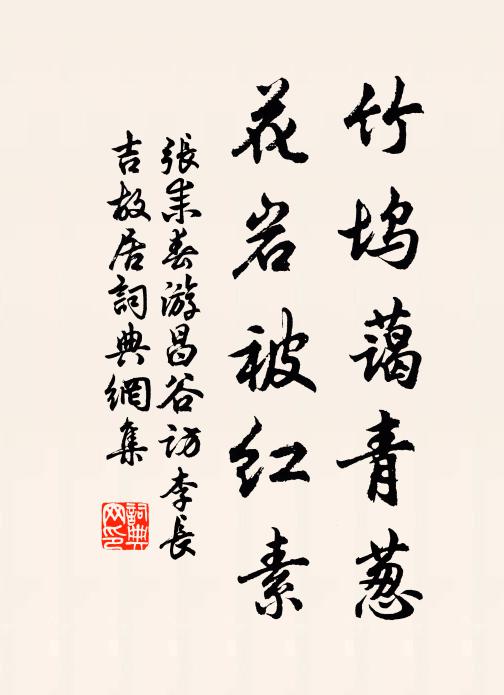 竹坞蔼青葱
花岩被红素
張耒春游昌谷访李長
吉故居詞典網集
詞典网印